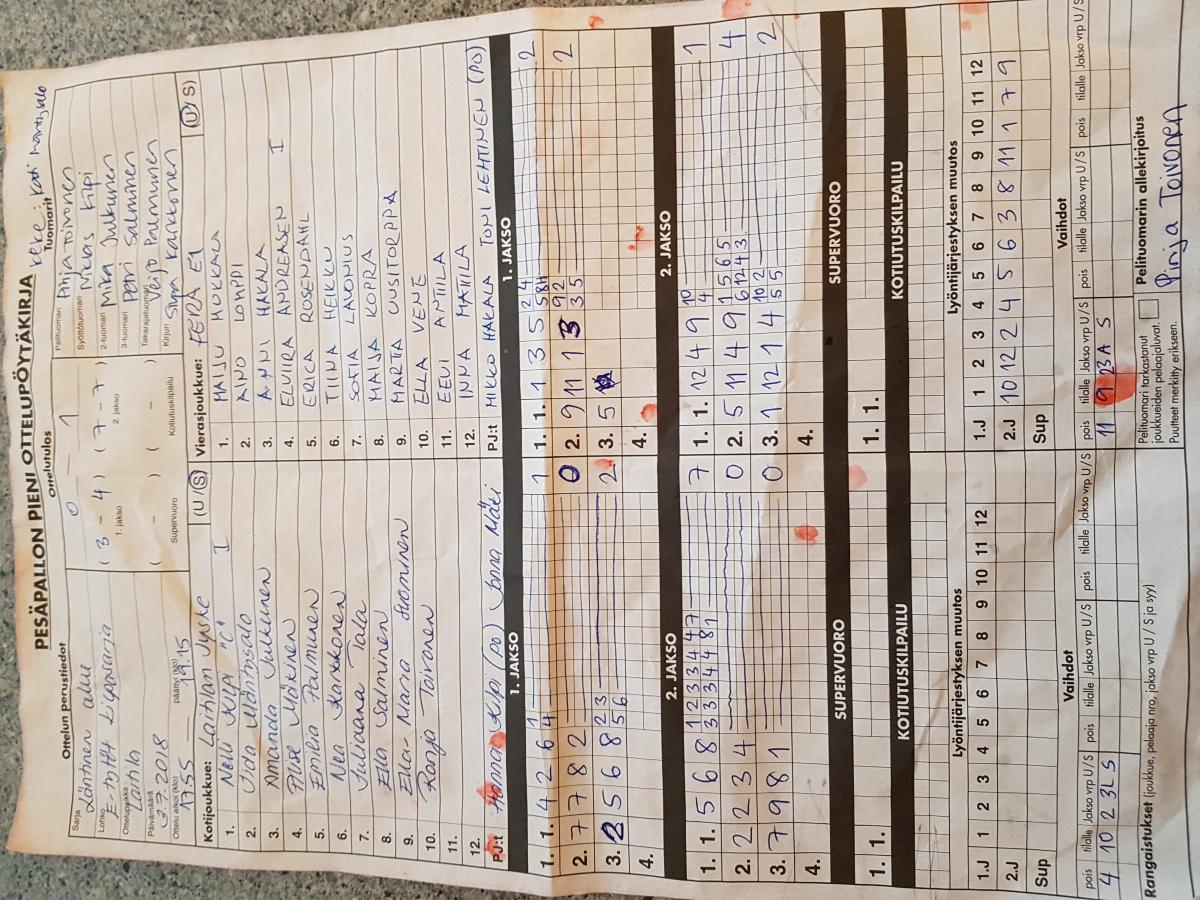 PESÄPALLON PIENI OTTELUPÖYTÄKIRJA
Ottelun perustiedot
Ottelutulos
Tuomarit
Sarja
Läntinen alue
Lohko
E-tytöt Lipposarja
Ottelupaikka
Laitila
Päivämäärä
2.7.2018
Ottelu alkoi (klo)
17.55
päättyi (klo)
19.15
0 - 1
( 3 - 4 ) ( 7 - 7 )
1. jakso 2. jakso
( - ) ( - )
Supervuoro Kotiutuskilpailu
Pelituomari Pinja Toivonen
Syöttötuomari Niklas Kilpi
2-tuomari Mika Jukunen
3-tuomari Petri Salminen
Takarajatuomari Veijo Palmunen
Kirjuri Sirpa Karkkonen
Kotijoukkue: Laitilan Jyske (U / S)
1. Neeli Kilpi "C" I
2. Iida Mäntysalo
3. Amanda Jukunen
4. Mäkinen
5. Emilia Palmunen
6. Nea Karkkonen
7. Juliaana Tala
8. Ella Salminen
9. Ella-Maria Suominen
10. Ronja Toivonen
11.
12.
PJ:t Hanna Kilpi (PO) Jonna Mäki
Vierasjoukkue: FERA E1 (U / S)
1. MAIJU HUKKALA
2. AINO LOMPPI
3. ANNI HAKALA
4. ELVIIRA ANDREASEN I
5. ERICA ROSENDAHL
6. TIINA HEIKKU
7. SOFIA LAVONIUS
8. MAIJA KOPRA
9. MARTTA UUSITORPPA
10. ELLA VENE
11. EEVI ANTTILA
12. INNA MATTILA
PJ:t MIKKO HAKALA TONI LEHTINEN (PO)
1. JAKSO
1. 1. 4 2 6 4 1 1
2. 7 7 8 2 0
3. 2 5 6 8 2 3 5 6 2
4.
1. JAKSO
1. 1. 1 3 5 2 4 2
2. 9 11 1 3 9 2 3 5 2
3. 5
4.
2. JAKSO
1. 1. 5 6 8 1 2 3 3 4 4 7 3 3 3 4 4 8 1 7
2. 2 2 3 4 0
3. 7 9 8 1 0
4.
2. JAKSO
1. 1. 12 4 9 10 4 1
2. 5 11 4 9 1 5 6 5 6 12 4 3 4
3. 1 12 1 4 10 2 5 5 2
4.
SUPERVUORO
1. 1.
SUPERVUORO
1. 1.
KOTIUTUSKILPAILU
KOTIUTUSKILPAILU
Lyöntijärjestyksen muutos
1.J 1 2 3 4 5 6 7 8 9 10 11 12
2.J
Sup
Lyöntijärjestyksen muutos
1.J 1 2 3 4 5 6 7 8 9 10 11 12
2.J 10 12 2 4 5 6 3 8 11 1 7 9
Sup
Vaihdot
pois tilalle Jakso vrp U/S pois tilalle Jakso vrp U/S pois tilalle Jakso vrp U/S
4 10 2 3L S
Vaihdot
pois tilalle Jakso vrp U/S pois tilalle Jakso vrp U/S pois tilalle Jakso vrp U/S
11 9 23A S
Rangaistukset (joukkue, pelaaja nro, jakso vrp U / S ja syy)
Pelituomari tarkastanut
joukkueiden pelaajaluvat.
Puutteet merkitty erikseen.
Pelituomarin allekirjoitus
Pinja Toivonen